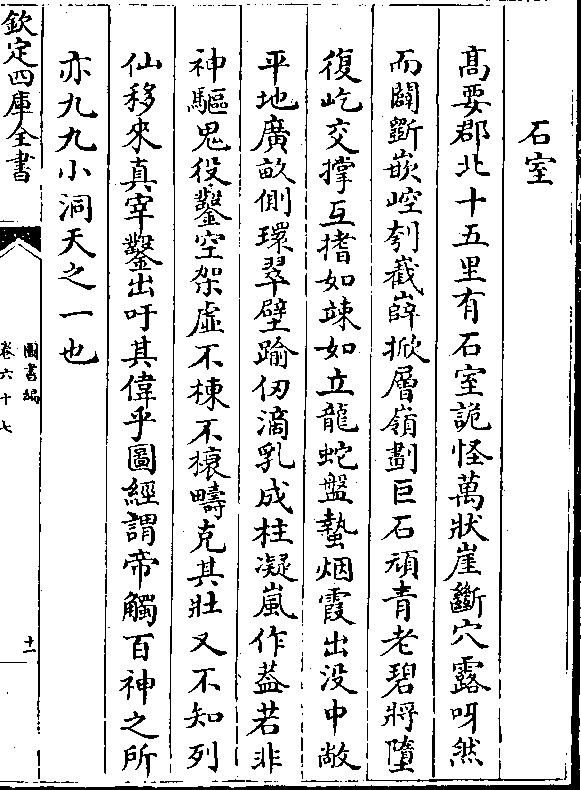 石室
髙要郡北十五里有石室詭怪萬狀崖斷穴露呀然
而闢斷嵌崆刳巀嶭掀層嶺劃巨石頑青老碧將墮
復屹交撐互揩如竦如立龍蛇盤蟄烟霞出没中敞
平地廣畝側環翠壁踰仞滴乳成柱凝嵐作葢若非
神驅鬼役鑿空架虛不棟不榱疇克其壯又不知列
仙移來真宰鑿出吁其偉乎圖經謂帝觴百神之所
亦九九小洞天之一也
欽定四庫全書
圖書編
卷六十七
十一